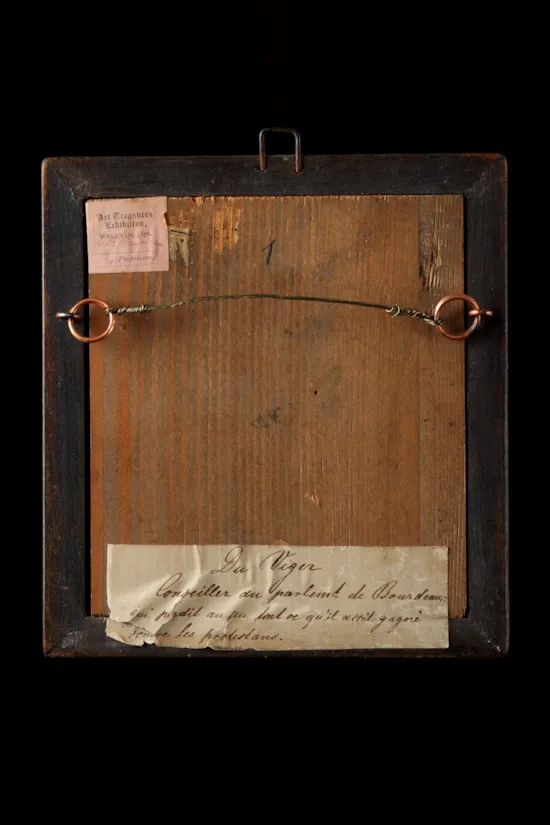 Art Treasures
Exhibition,
1
Du Viger
Conseiller du parlemt de Bourdeaux
qui perdit au jeu tout ce qu'il avoit gagné
contre les protestans.